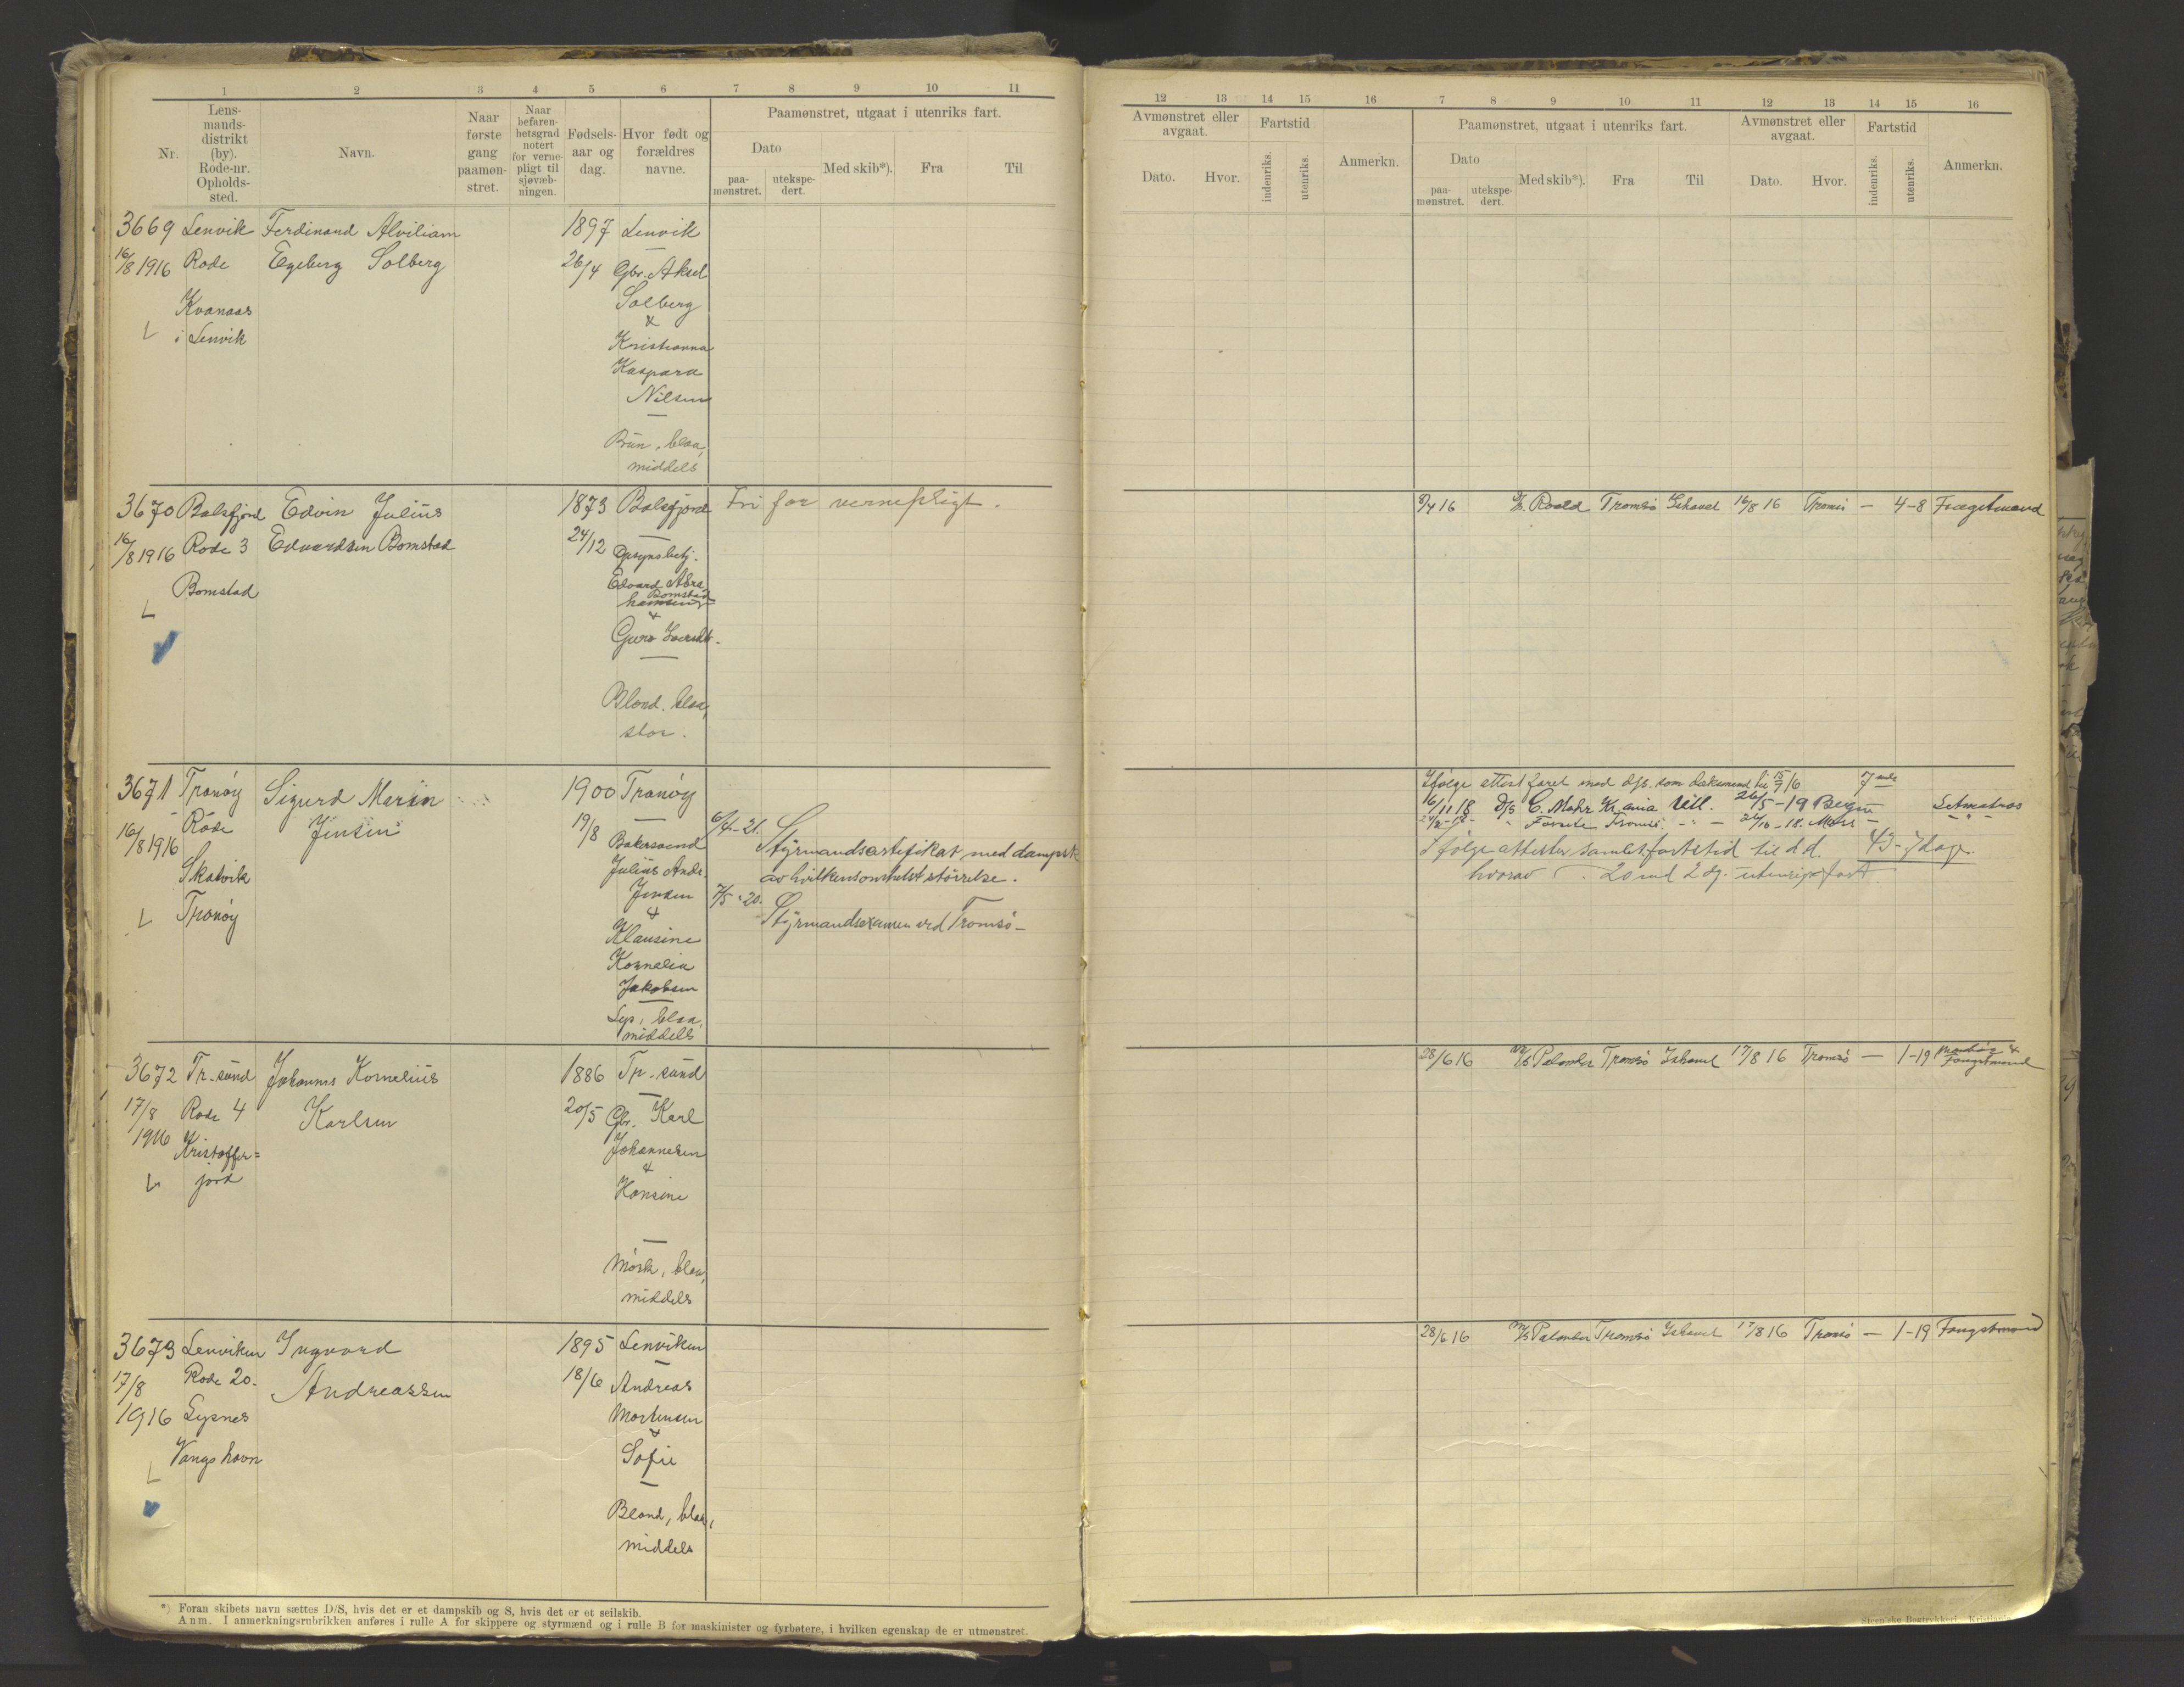 1 2 3 4 5 6 7 8 9 10 11
Nr.
Lens-
mands-
distrikt
(by).
Rode-nr.
Opholds-
sted.
Navn.
Naar
første
gang
paamøn-
stret.
Naar
befaren-
hetsgrad
notert
for verne-
pligt til
sjøvæb-
ningen.
Fødsels-
aar og
dag.
Hvor født og
forældres
navne.
Paamønstret, utgaat i utenriks fart.
Dato
paa-
mønstret.
utekspe-
dert.
Med skib*).
Fra
Til
3669 Lenvik Ferdinand Alviliam 1897 Lenvik
16/8 1916 Rode Egeberg Solberg 26/4 Gbr. Aksel
Kvanaas
i Lenvik
Solberg
&
Kristianna
Kaspara
Nilsen
Brun, blaa,
middels
3670 Balsfjord Edvin Julius 1873 Balsfjord Fri for vernepligt.
16/8 1916 Rode 3 Edvardsen Bomstad 24/12 Opsynsbetj.
Bomstad
Edvard Abra-
Bomstad
hamsen
&
Guro
Blond, blaa,
stor.
3671 Tranöy Sigurd Marin 1900 Tranöy
16/8 1916 Rode Jensen 19/8
Skatvik
Tranöy
Julius Andr.
Jensen
&
Klausine
Kornelia
Jakobsen
Lys, blaa,
middels
6/4-21. Styrmandscertifikat med dampsk
av hvilkensomhelst størrelse.
7/5-20. Styrmandsexamen ved Tromsö-
3672 Tr.sund Johannes Kornelius 1886 Tr.sund
17/8 1916 Rode 4 Karlsen 20/5 Gbr. Karl
Kristoffer=
jord
Johannesen
&
Hansine
Mörk, blaa,
middels
3673 Lenviken Ingvard 1895 Lenviken
17/8 Rode 20. Andreassen 18/6 Andreas
1916 Lysnes
Vangshavn
Mortensen
&
Sofie
Blond, blaa,
middels
*) Foran skibets navn sættes D/S, hvis det er et dampskib og S, hvis det er et seilskib.
Anm. I anmerkningsrubrikken anføres i rulle A for skippere og styrmænd og i rulle B for maskinister og fyrbøtere, i hvilken egenskap de er utmønstret.
12 13 14 15 16 7 8 9 10 11 12 13 14 15 16
Avmønstret eller
avgaat.
Dato. Hvor.
Fartstid
indenriks. utenriks.
Anmerkn.
Paamønstret, utgaat i utenriks fart.
Dato
paa-
mønstret.
utekspe-
dert.
Med skib*).
Fra
Til
Avmønstret eller
avgaat.
Dato. Hvor.
Fartstid
indenriks. utenriks.
Anmerkn.
Roald Tromsö Ishavet 16/8 16 Tromsö — 4-8 Fangstmand
Ifølge attest faret med d/s. som dæksmand til 15/9 16
16/11 18 D/S C. Mohr Kr.ania Utl. 26/5-19 Bergen Letmatros
Ifølge attester samlet fartstid til d.d. 43-7 dag.
hvorav 20 md 2 dg. utenriksfart.
28/6 16 M/S Palander Tromsö Ishavet 17/8 16 Tromsö — 1-19 Fangstmand
28/6 16 M/S Palander Tromsö Ishavet 17/8 16 Tromsö — 1-19 Fangstmand
Steen'ske Bogtrykkeri, Kristiania